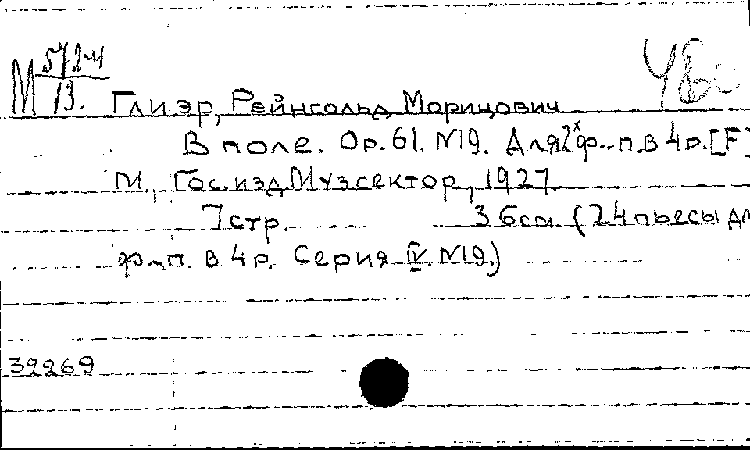 М 572-4
13.
Глиэр, Рейнгольд Морицович
В поле. Op. 61. N19. Для 2х ф.-п. в 4 р. [F]
М., Госизд. Музсектор, 1927
7 стр. 36 см. (24 пьесы дл
ф.-п. в 4 р. Серия IV. N19.)
32269